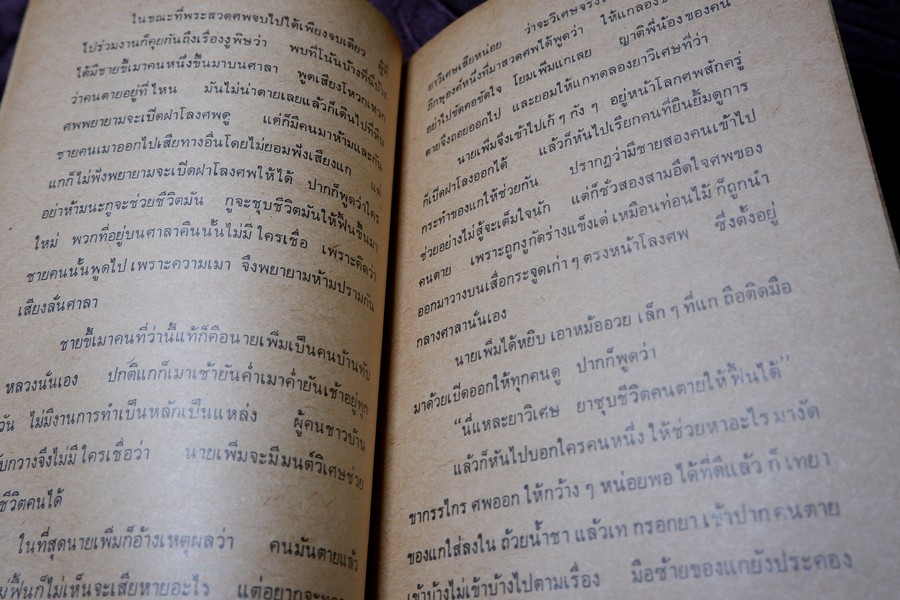 ในขณะที่พระสวดศพจบไปได้เพียงจบเดียว
ไปร่วมงานก็คุยกันถึงเรื่องงูพิษว่า พบที่โน้นบ้างที่นี่บ้าง
ได้มีชายขี้เมาคนหนึ่งขึ้นมาบนศาลา พูดเสียงโหวกเหวก
ว่าคนตายอยู่ที่ไหน มันไม่น่าตายเลยแล้วก็เดินไปที่หีบ
ศพพยายามจะเปิดฝาโลงศพดู แต่ก็มีคนมาห้ามและกัน
ชายคนเมาออกไปเสียทางอื่นโดยไม่ยอมฟังเสียงแก แต่
แกก็ไม่ฟังพยายามจะเปิดฝาโลงศพให้ได้ ปากก็พูดว่าใคร
อย่าห้ามนะกูจะช่วยชีวิตมัน กูจะชุบชีวิตมันให้ฟื้นขึ้นมา
ใหม่ พวกที่อยู่บนศาลาคืนนั้นไม่มีใครเชื่อ เพราะคิดว่า
ชายคนนั้นพูดไปเพราะความเมา จึงพยายามห้ามปรามกัน
เสียงลั่นศาลา
ชายขี้เมาคนที่ว่านี้แท้ก็คือนายเพิ่มเป็นคนบ้านทับ
หลวงนั่นเอง ปกติแกก็เมาเช้ายันค่ำเมาค่ำยันเช้าอยู่ทุก
วัน ไม่มีงานการทำเป็นหลักเป็นแหล่ง ผู้คนชาวบ้าน
กวางจึงไม่มีใครเชื่อว่า นายเพิ่มจะมีมนต์วิเศษช่วย
ชีวิตคนได้
ในที่สุดนายเพิ่มก็อ้างเหตุผลว่า คนมันตายแล้ว
ไม่ฟื้นก็ไม่เห็นจะเสียหายอะไร แต่อยากจะ
ยาวิเศษเสียหน่อย ว่าจะวิเศษจริง
องค์หนึ่งที่มาสวดศพได้พูดว่า ให้แกลอง
อย่าไปขัดคอขัดใจ โยมเพิ่มแกเลย ญาติพี่น้องของคน
ตายจึงถอยออกไป และยอมให้แกทดลองยาวิเศษที่ว่า
นายเพิ่มจึงเข้าไปเก้ ๆ กัง ๆ อยู่หน้าโลกศพสักครู่
ก็เปิดฝาโลงออกได้ แล้วก็หันไปเรียกคนที่ยืนยิ้มดูการ
กระทำของแกให้ช่วยกัน ปรากฏว่ามีชายสองคนเข้าไป
ช่วยอย่างไม่สู้จะเต็มใจนัก แต่ก็ชั่วสองสามอึดใจศพของ
คนตาย เพราะถูกงูกัดร่างแข็งเด่ เหมือนท่อนไม้ ก็ถูกนำ
ออกมาวางบนเสื่อกระจูดเก่า ๆ ตรงหน้าโลงศพ ซึ่งตั้งอยู่
กลางศาลานั่นเอง
นายเพิ่มได้หยิบ เอาหม้ออวย เล็ก ๆ ที่แก ถือติดมือ
มาด้วยเปิดออกให้ทุกคนดู ปากก็พูดว่า
“นี่แหละยาวิเศษ ยาชุบชีวิตคนตายให้ฟื้นได้”
แล้วก็หันไปบอกใครคนหนึ่ง ให้ช่วยหาอะไร มางัด
ขากรรไกร ศพออก ให้กว้าง ๆ หน่อยพอ ได้ที่ดีแล้ว ก็ เทยา
ของแกใส่ลงใน ถ้วยน้ำชา แล้วเท กรอกยา เข้าปาก คนตาย
เข้าบ้างไม่เข้าบ้างไปตามเรื่อง มือซ้ายของแกยังประคอง